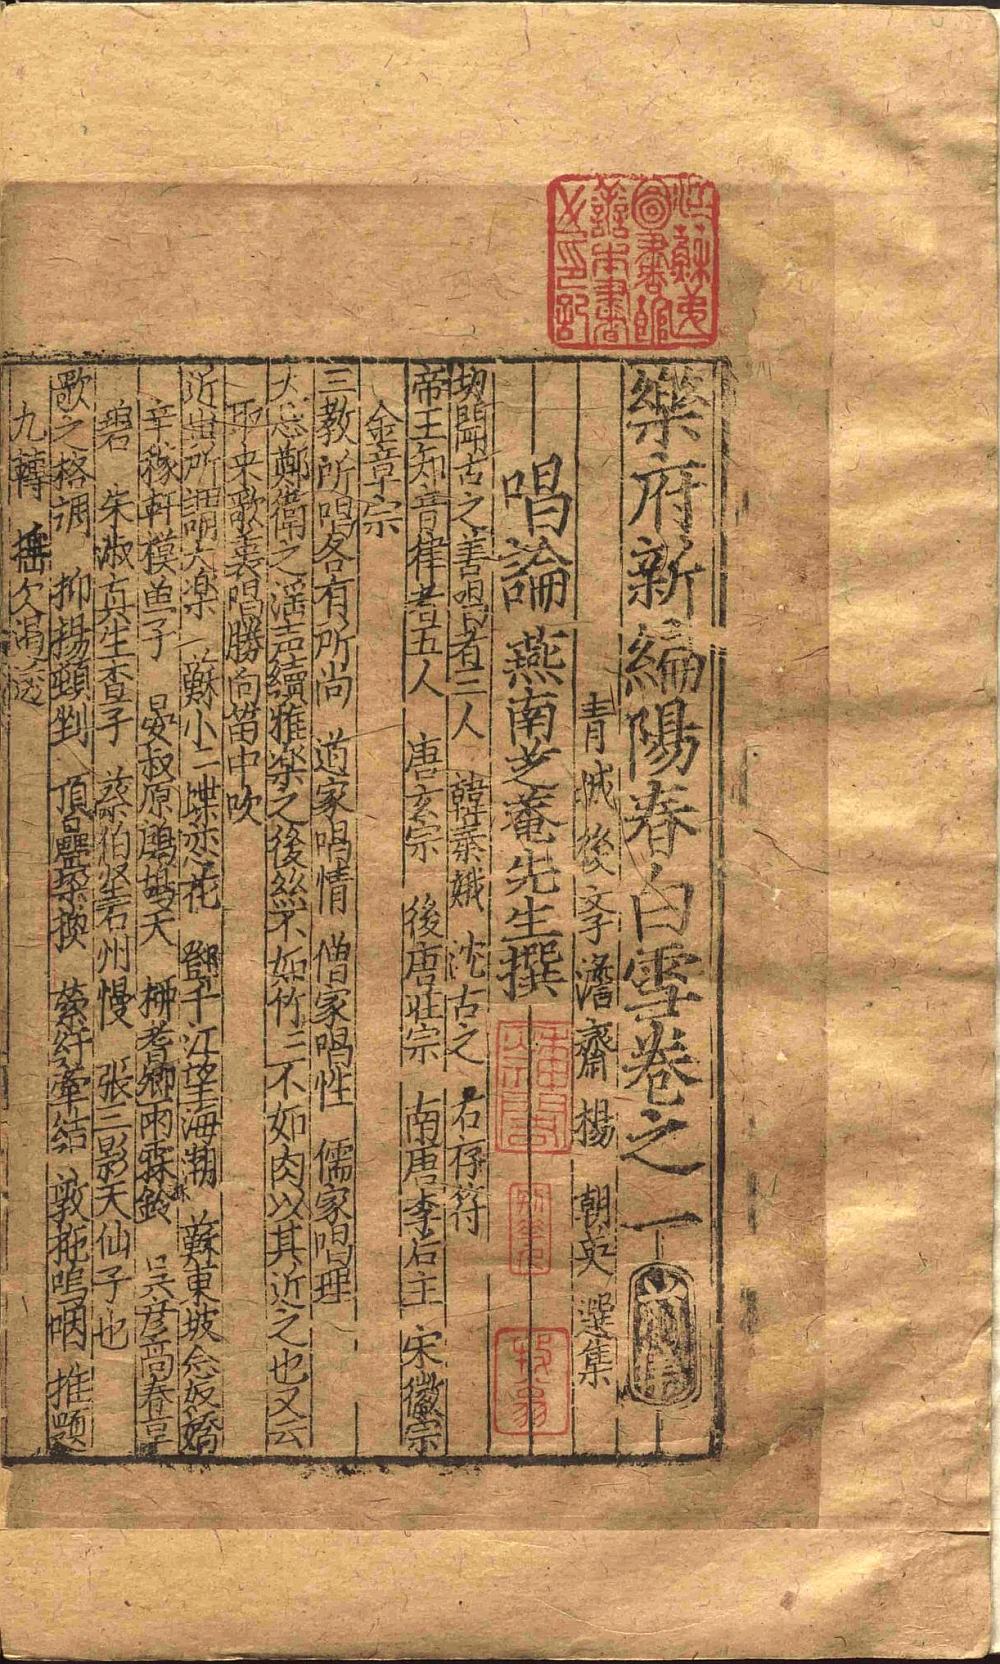 樂府新編陽春白雪卷之一
青城後學澹齋楊 朝英 選集
唱論 燕南芝菴先生撰
切聞古之善唱者三人 韓秦娥 沈古之 石存符
帝王知音律者五人 唐玄宗 後唐庄宗 南唐李后主 宋徽宗
金章宗
三教所唱各有所尚 道家唱情 僧家唱性 儒家唱理
大忌鄭衛之淫声續雅楽之後絲不如竹竹不如肉以其近之也又云
取來歌裏唱勝向笛中吹
近出所謂大楽 蘇小小蝶恋花 鄧千江望海潮 蘇東坡念奴嬌
辛稼軒摸魚子 晏叔原鷓鴣天 柳耆卿雨霖鈴 吳彦高春草
碧 朱淑真生查子 蔡伯堅石州慢 張三影天仙子也
歌之格調 抑揚頓剉 頂疊垜換 縈紆牽結 敦拖嗚咽 推題
九轉 搖欠遏透
江蘇第
圖書館
善本書
之印記